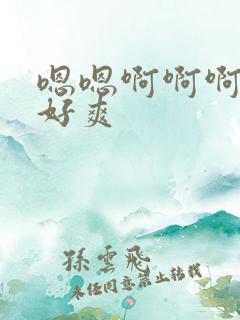 嗯嗯啊啊啊
好爽
孫雲飛
未经同意禁止转载